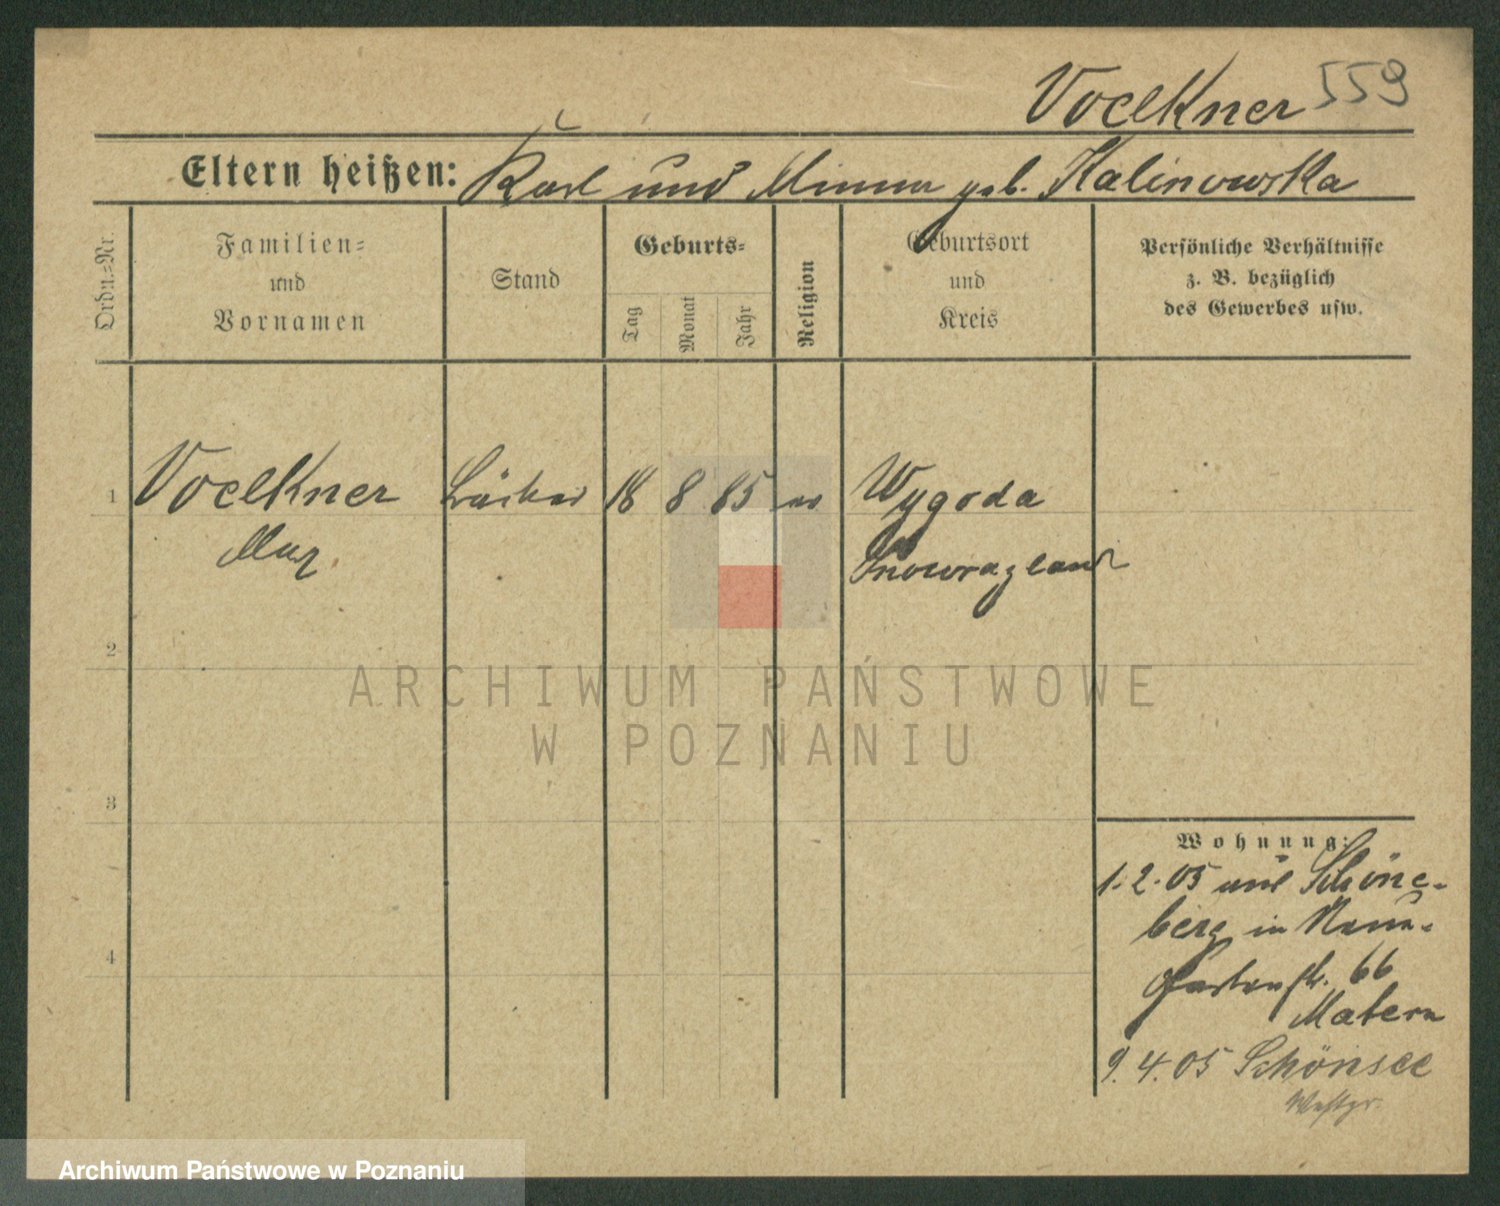 Voelkner 559
Eltern heißen: Karl und Minna geb. Kalinowska
Ordn.=Nr.
Familien=
und
Vornamen
Stand
Geburts=
Tag
Monat
Jahr
Religion
Geburtsort
und
Kreis
Persönliche Verhältnisse
z. B. bezüglich
des Gewerbes usw.
1 Voelkner Bäcker 18 8 85 ev Wygoda
Max.
Inowrazlaw
2
3
4
Wohnung:
1.2.05 aus Schöne-
berg in
Gartenstr. 66
Matern
9.4.05 Schönsee
Westpr.
ARCHIWUM PAŃSTWOWE
W POZNANIU
Archiwum Państwowe w Poznaniu